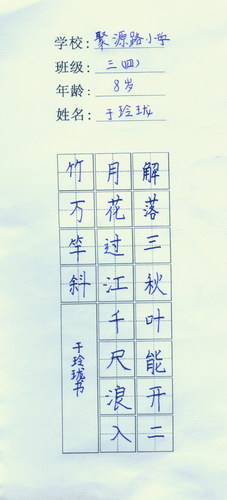 学校：聚源路小学
班级：三（四）
年龄：8岁
姓名：于玲珑
解落三秋叶能开二
月花过江千尺浪入
竹万竿斜
于玲珑书